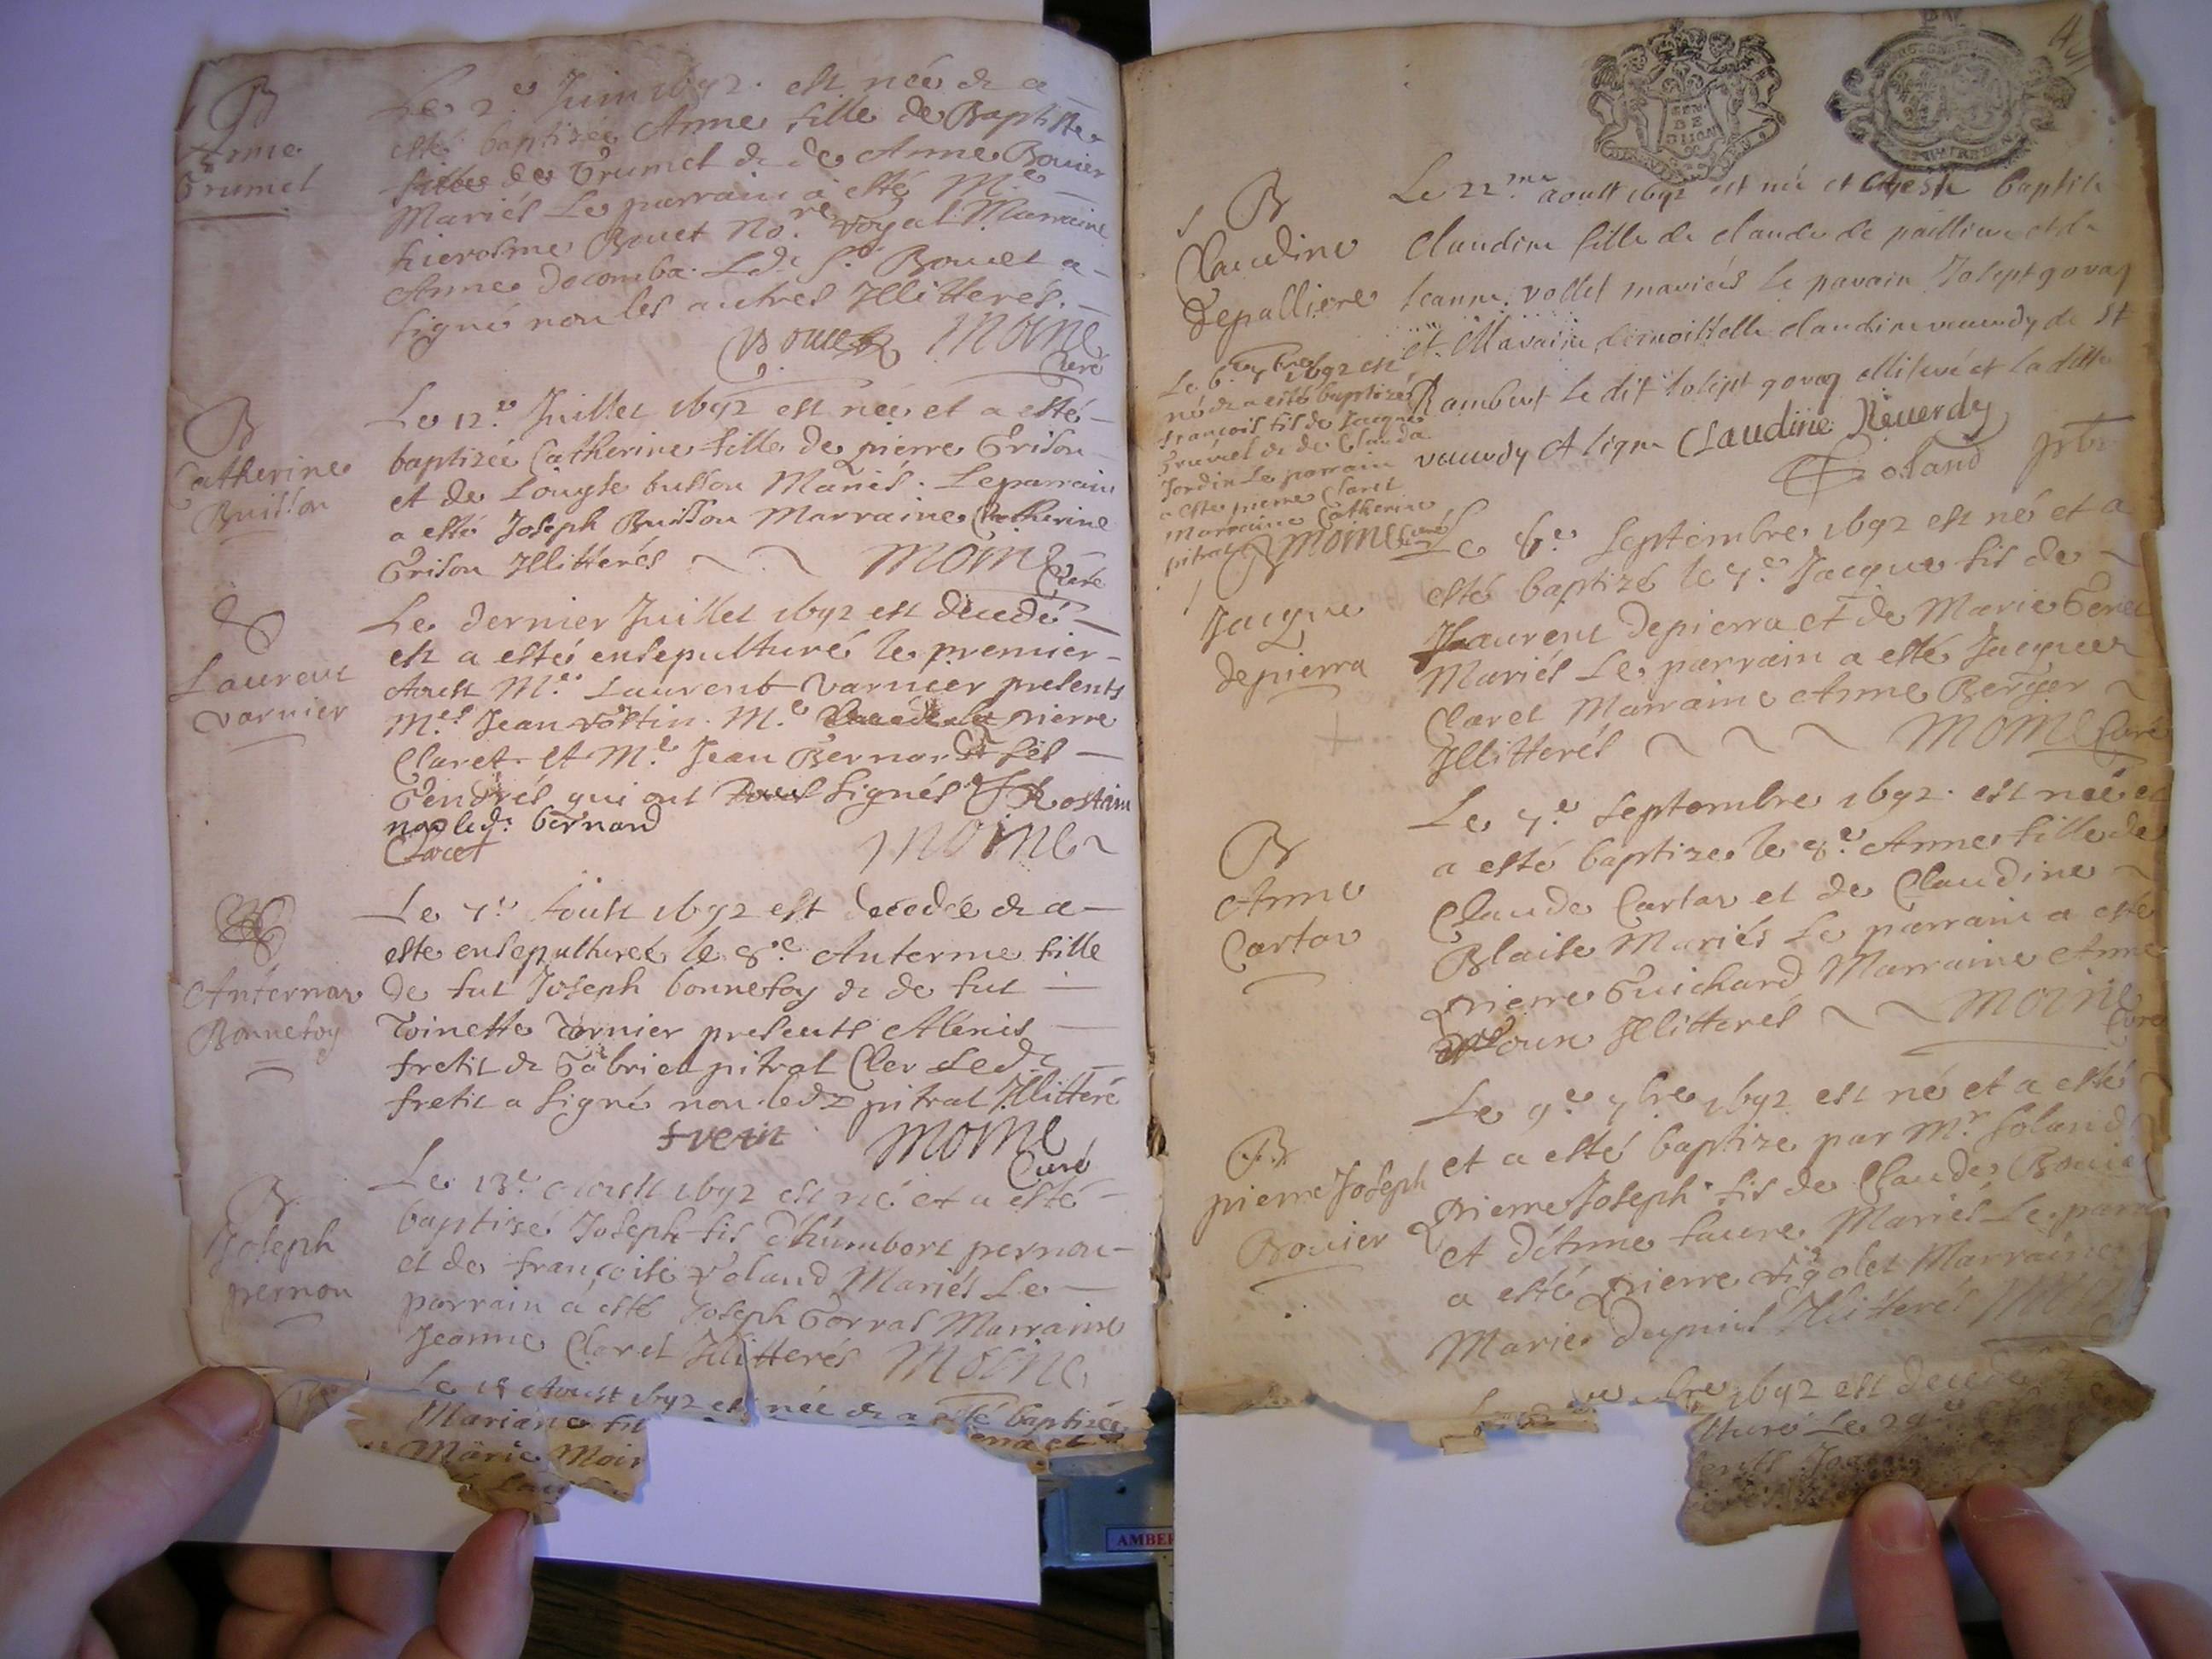 B
Anne
Grumel
Le 2e Juin 1692. est née & a
esté baptizée Anne fille de Baptiste
Grumel & de Anne Bouier
Mariés Le parrain a esté Me
hierosme Bouet No.re royal Marraine
Anne decomba. Led. Sr Bouet a
signé non les autres Illitterés.
Bouet Moine
Curé
B
Catherine
Buisson
Le 12e Juillet 1692 est née et a esté
baptizée Catherine fille de pierre Grison
et de Louyse buisson Mariés. Le parrain
a esté Joseph Buisson Marraine Catherine
Grison Illitterés Moine
Curé
Laurent
varnier
Le dernier Juillet 1692 est decedé
et a esté ensepulturé le premier
Aoust Me Laurent varnier presents
Mes Jean rostin. Me pierre
Claret et Me Jean Bernard ses
Gendres qui ont signés Rostain
non led. bernard
Claret Moine
Anterma
Bonnefoy
Le 7e Aoust 1692 est decedée & a
esté ensepulturée le 8e Anterme fille
de fut Joseph bonnefoy & de fut
Toinette Tornier presents Alenis
fretit & Gabriel pitrat Cler Led.
fretit a signé non led pitrat Illitteré
fretit Moine
Curé
B
Joseph
pernon
Le 13e Aoust 1692 est né et a esté
baptizé Joseph fis d'humbert pernon
et de françoise Tolaud Mariés Le
parrain a esté Joseph Gorras Marraine
Jeanne Claret Illitterés Moine
Le 15 Aoust 1692 est née & a esté baptizée
Mariane fil
Marie Moin
B
Claudine
Depalliere
Le 22me aoust 1692 est née et baptisée
Claudine fille de claude de paillieu et de
Jeanne vollet mariés le parain Joseph goray
et Maraine demoiselle claudine reuerdy de St
Rambert le dit Joseph goray et la ditte
reuerdy A signé Claudine Reuerdy
Soland
Le 6e 7bre 1692 est
né & a esté baptizé
françois fis de Jacque
Grumel & de Clauda
Jordin Le parrain
a esté pierre Claret
Marraine Catherine
pitrat Moine Curé
Jacque
depierra
Le 6e Septembre 1692 est né et a
esté baptizé le 7e Jacque fis de
Laurent depierra et de Marie Genet
Mariés Le parrain a esté Jacques
Claret Marraine Anne Berger
Illitterés Moine Curé
B
Anne
Cartar
Le 7e Septembre 1692. est née et
a esté baptizée le 8e Anne fille de
Claude Cartar et de Claudine
Blaise Mariés Le parrain a esté
pierre Guichard Marraine Anne
Illitterés Moine
Curé
B
pierre Joseph
Bouier
Le 9e 7bre 1692 est né et a esté
et a esté baptize par Mr Soland
pierre Joseph fis de Claude Bouier
et d'Anne faure Mariés Le para
a esté pierre rigolet Marraine
Marie dupuis Illitterés Moine
bre 1692 est decedé
turé Le 29e